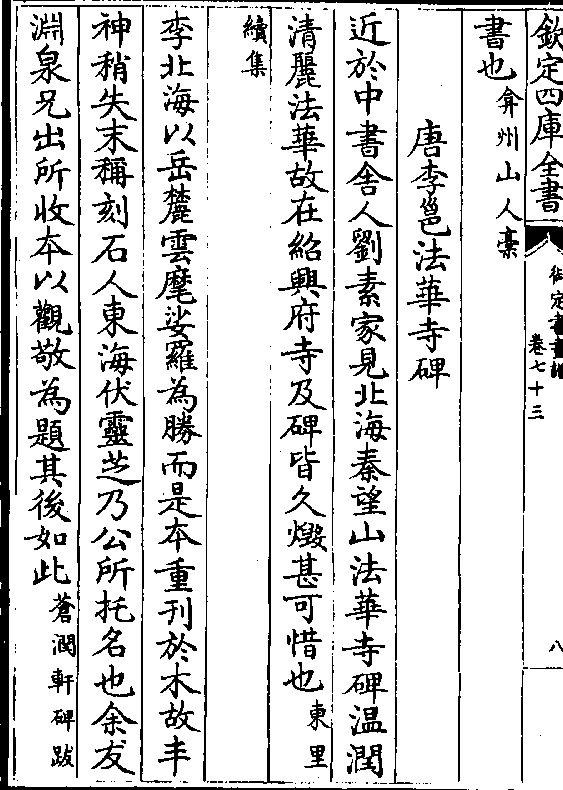 欽定四庫全書
御定書畫譜
卷七十三
八
書也弇州山人稾
唐李邕法華寺碑
近於中書舍人劉素家見北海秦望山法華寺碑温潤
清麗法華故在紹興府寺及碑皆久燬甚可惜也東里
續集
李北海以岳麓雲麾娑羅為勝而是本重刊於木故丰
神稍失末稱刻石人東海伏靈芝乃公所托名也余友
淵泉兄出所收本以觀敬為題其後如此蒼潤軒碑跋